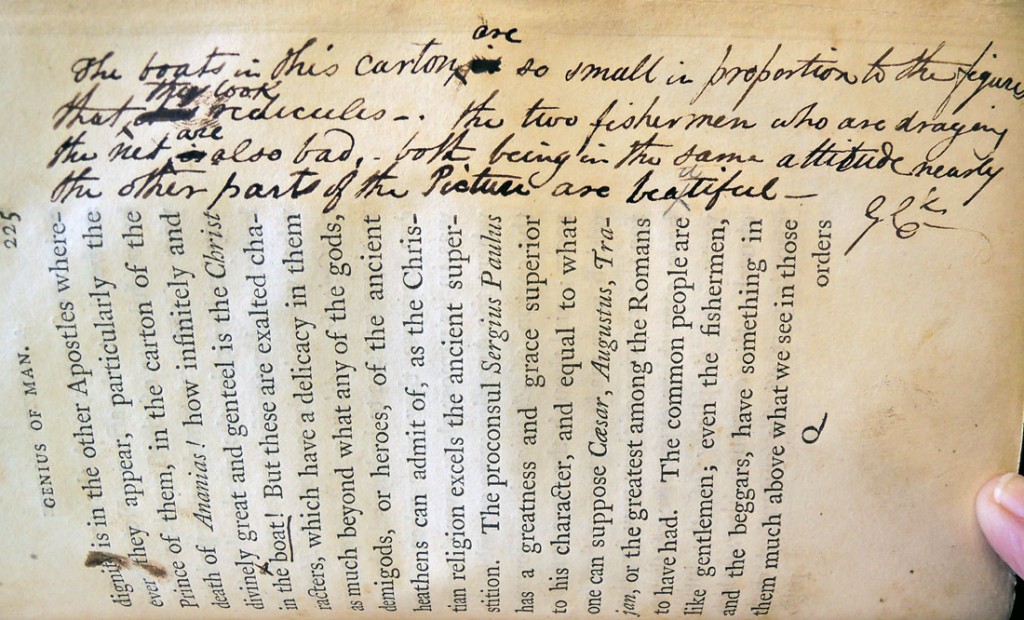 The boats in this carton are so small in proportion to the figures
that they look redicules -. the two fishermen who are draging
the net are also bad, - both being in the same attitude nearly
the other parts of the Picture are beautiful -
GENIUS OF MAN. 225
dignity is in the other Apostles where-
ever they appear, particularly the
Prince of them, in the carton of the
death of Ananias! how infinitely and
divinely great and genteel is the Christ
in the boat! But these are exalted cha-
racters, which have a delicacy in them
as much beyond what any of the gods,
demigods, or heroes, of the ancient
heathens can admit of, as the Chris-
tian religion excels the ancient super-
stition. The proconsul Sergius Paulus
has a greatness and grace superior
to his character, and equal to what
one can suppose Cæsar, Augustus, Tra-
jan, or the greatest among the Romans
to have had. The common people are
like gentlemen; even the fishermen,
and the beggars, have something in
them much above what we see in those
Q orders